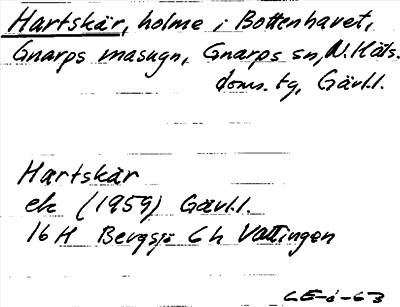 Hartskär, holme i Bottenhavet,
Gnarps masugn, Gnarps sn, N. Häls.
doms. tg, Gävl.l.
Hartskär
ek (1959) Gävl.l.
16 H Bergsjö 6 h Vattingen
CE-i-63